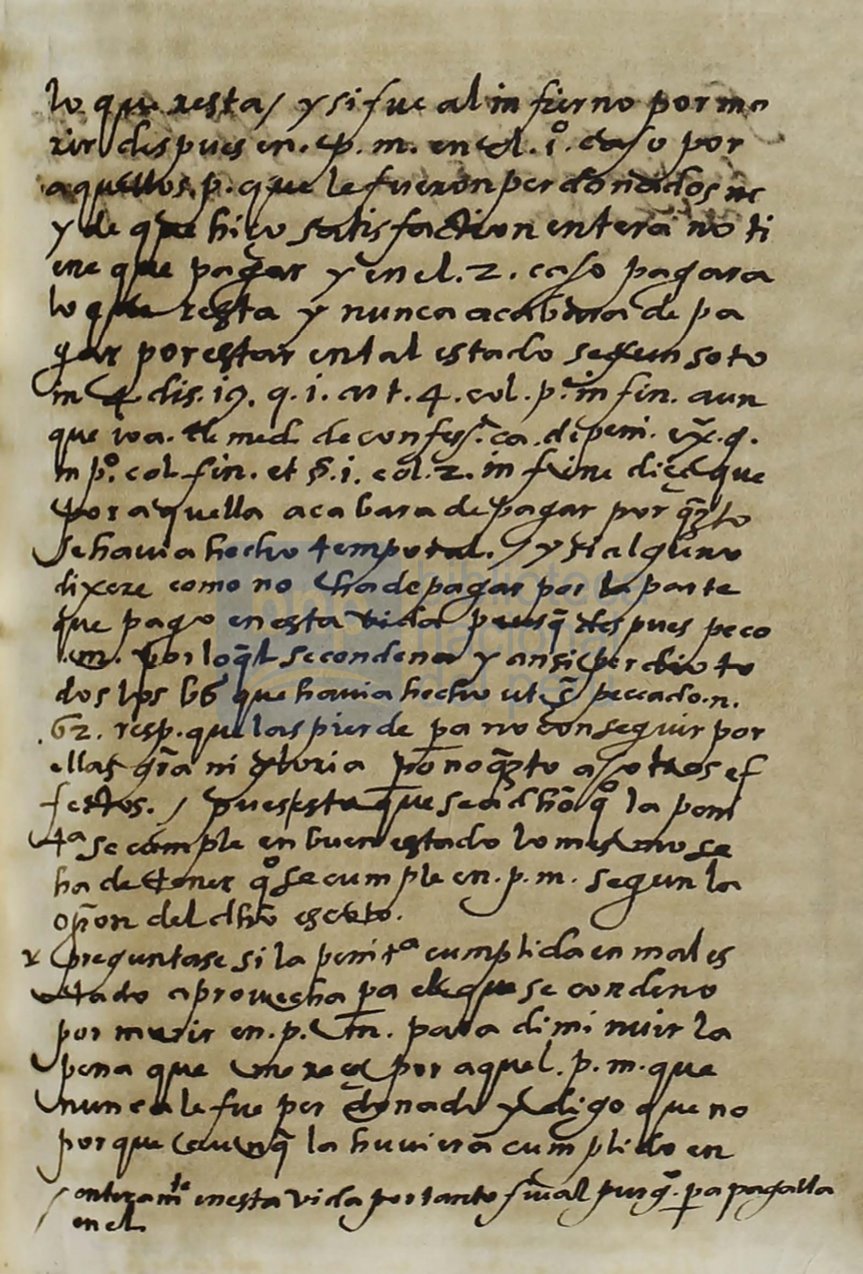 lo que resta / y si fue al infierno por mo
rir despues en . p. m. en el . 1º. caso por
aquellos . p. que le fueron perdonados
y de que hizo satisfaction entera no ti
ene que pagar y en el . 2 . caso pagara
lo que resta y nunca acabara de pa
gar por estar en tal estado segun soto
in 4 dis. 19. q. 1. art. 4. col. pª. in fin. aun
que ioa. de med. de confess. ca. de peni.
in pº. col. fin. et §. 1. col. 2. in fine dice que
por aquella acabara de pagar por qto
se havia hecho temporal. / y si alguno
dixere como no ha de pagar por la parte
que pago en esta vida puesq̃ despues peco
.m. por lo ql̃ se condena y ansi perdio to
dos los que havia hecho ut §. peccado .n.
62. resp. que las pierde pa no conseguir por
ellas grã ni gloria pero no quãto a otros ef
fectos. / puesesto que sea dhõ qº la peni
tª se cumple en buen estado lo mesmo se
ha de tener qº se cumple en . p. m. segun la
opiñon del dhõ escoto.
x preguntase si la penitª cumplida en mal es
tado aprovecha pa el que se condeno
por morir en . p. m. para diminuir la
pena que merece por aquel . p. m. que
nunca le fue perdonado y digo que no
porque aunq̃ la huviera cumplido en
enteramte en esta vida por tanto pa pagalla
en el